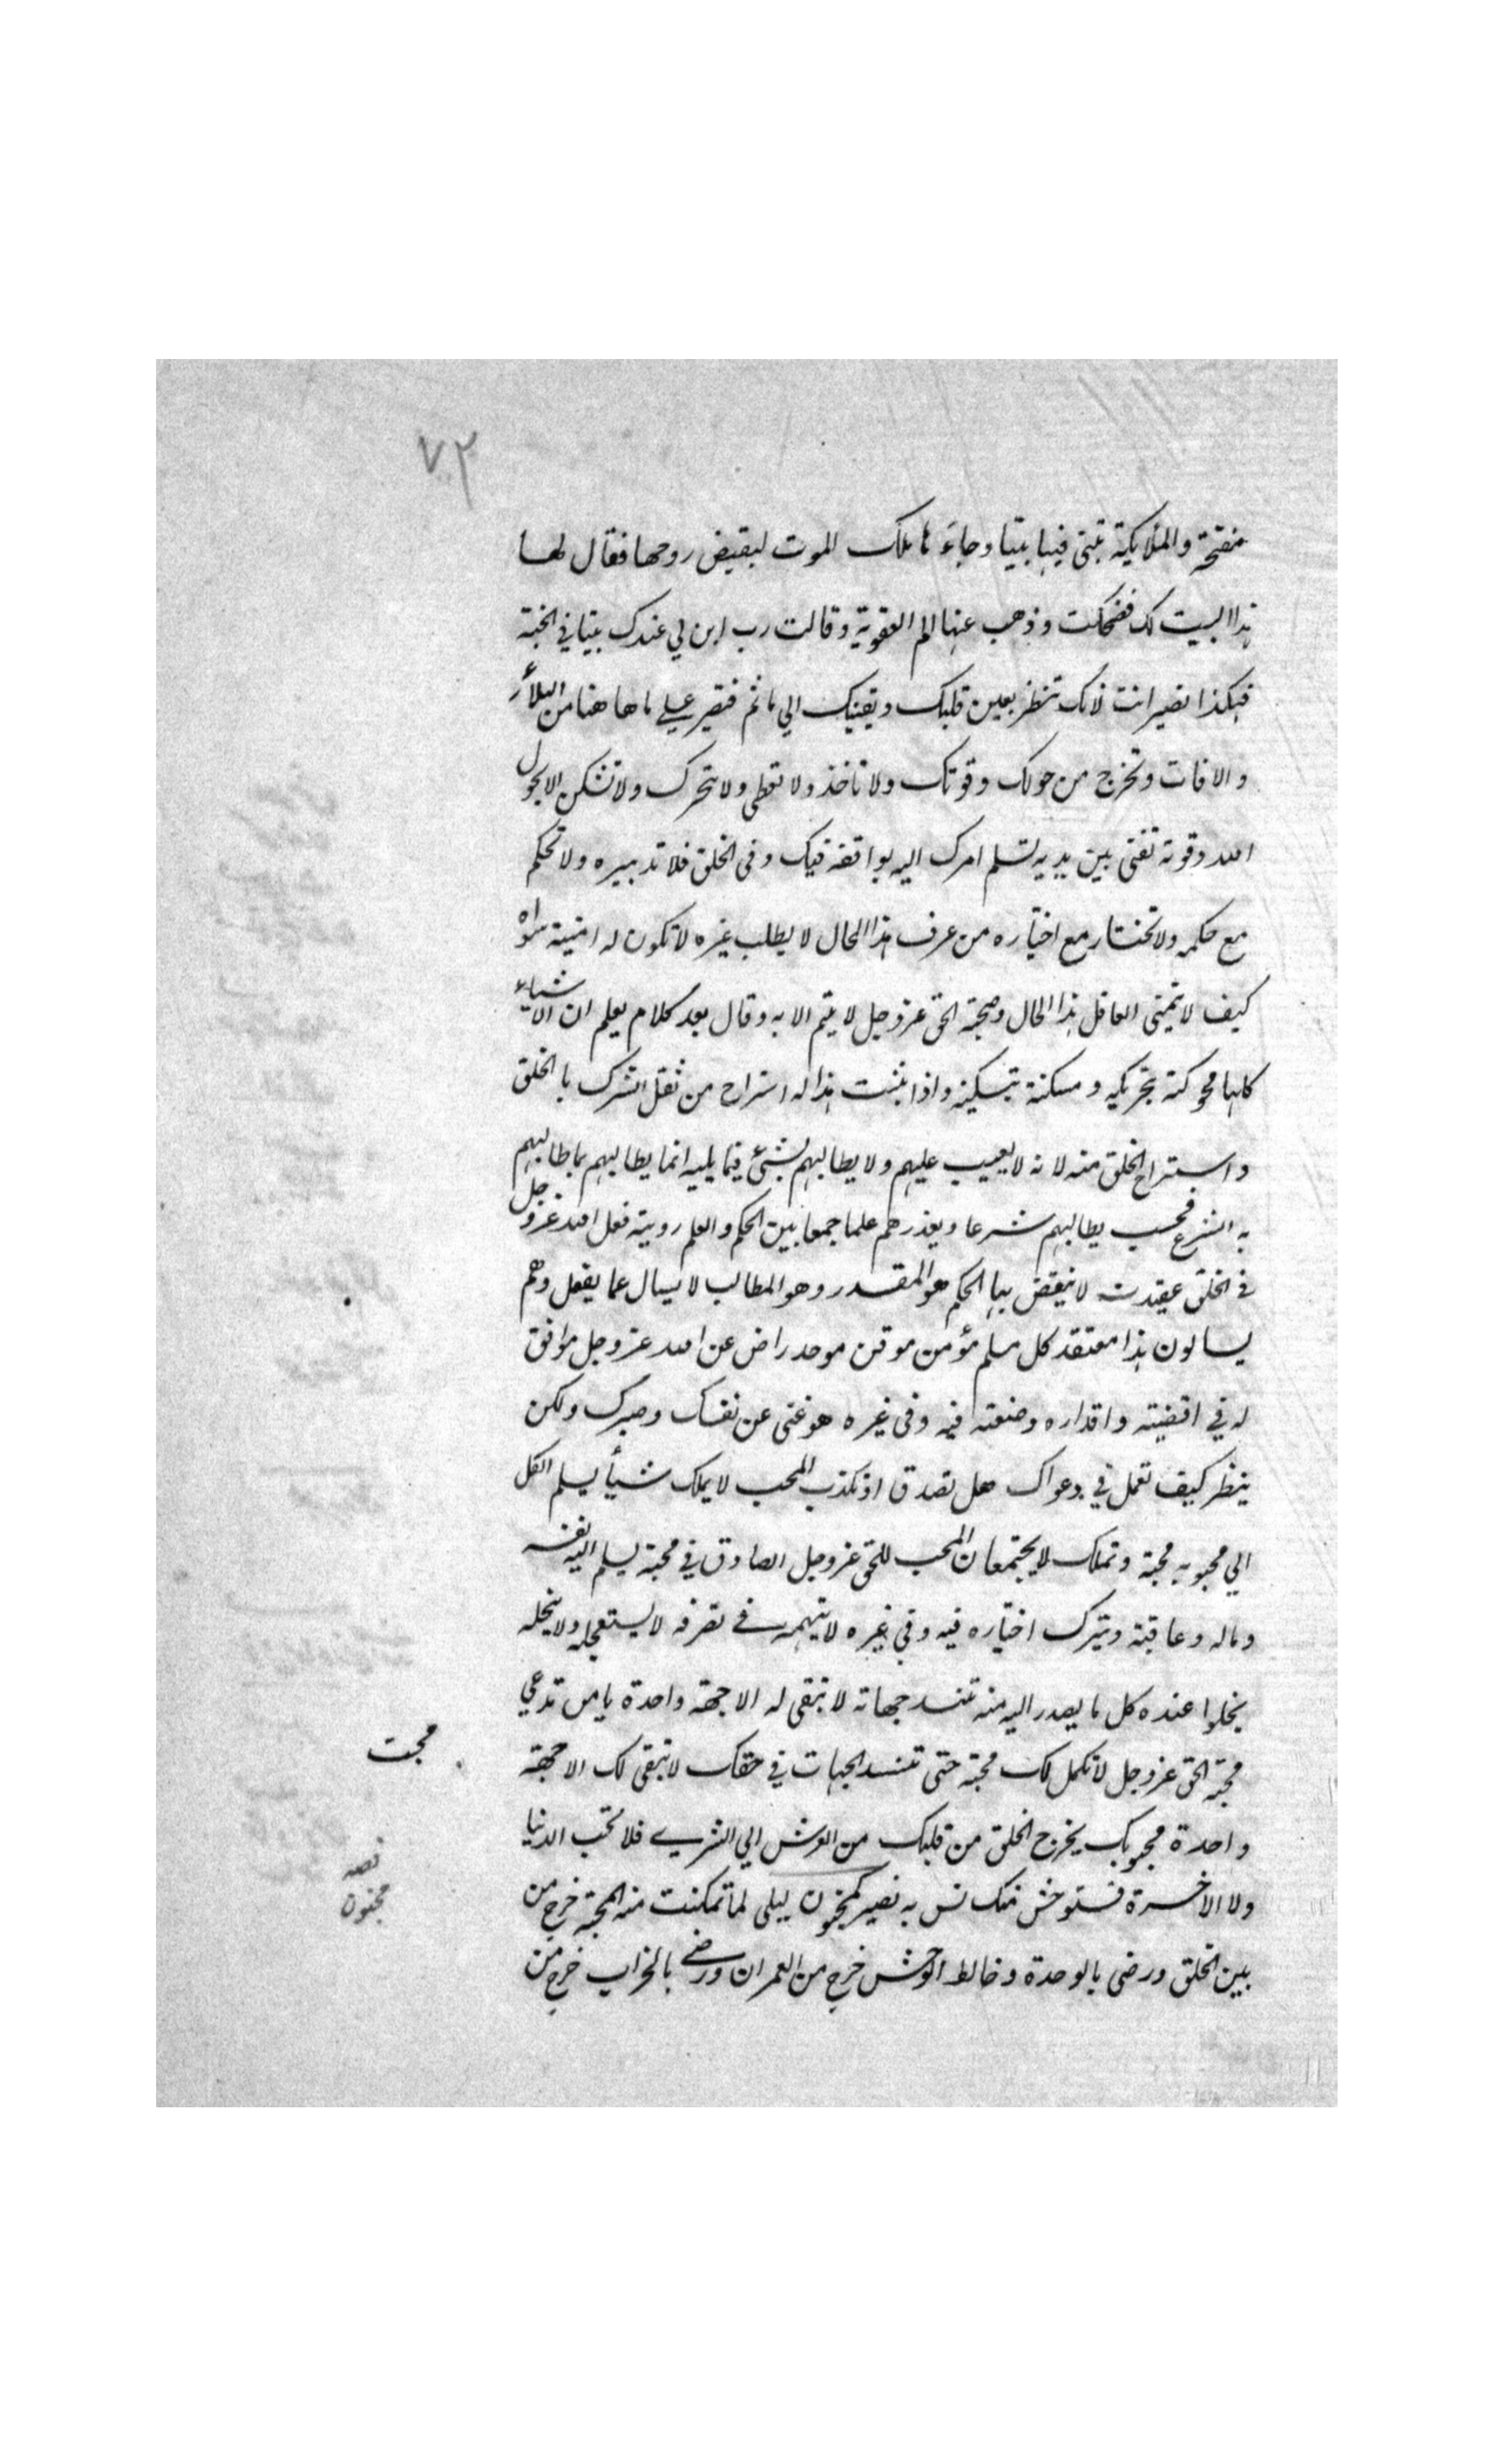 ٧٢
منفتحة والملايكة تبنى فيها بيتا وجاءها ملك الموت ليقبض روحها فقال لها
هذا البيت لك فضحكت وذهب عنها الم العقوبة وقالت رب ابن لي عندك بيتا في الجنة
فهكذا تصير انت لانك تنظر بعين قلبك ويقينك الي ما ثم فتصبر علي ما هاهنا من البلاء
والافات وتخرج من حولك وقوتك ولا تاخذ ولا تعطى ولا تتحرك ولا تسكن الا بحول
الله وقوته تفنى بين يديه تسلم امرك اليه يوافقه فيك وفى الخلق فلا تدبيره ولا تحكم
مع حكمه ولا تختار مع اختياره من عرف هذا الحال لا يطلب غيره لا تكون له امنية سواه
كيف لا يتمنى العاقل هذا الحال وصحبة الحق عز وجل لا يتم الا به وقال بعد كلام يعلم ان الاشياء
كلها محركة بتحريكه ومسكنة بتسكينه واذا ثبت هذا له استراح من ثقل الشرك بالخلق
واستراح الخلق منه لانه لا يعيب عليهم ولا يطالبهم بشئ فيما يليه انما يطالبهم بما طالبهم
به الشرع فحسب يطالبهم شرعا ويعذرهم علما جمعا بين الحكم والعلم روية فعل الله عز وجل
فى الخلق عقيدت لا ينقض بها الحكم هو المقدر وهو المطالب لا يسال عما يفعل وهم
يسالون هذا معتقد كل مسلم مؤمن موقن موحد راض عن الله عز وجل موافق
له في اقضيته واقداره وصنعته فيه وفى غيره هو غنى عن نفسك وصبرك ولكن
ينظر كيف تعمل في دعواك هل تصدق او تكذب المحب لا يملك شيأ يسلم الكل
الي محبوبه محبة وتملك لا يجتمعان المحب للحق عز وجل الصادق في محبة يسلم اليه نفسه
وماله وعاقبة ويترك اختياره فيه وفي غيره لا يتهمه في تصرفه لا يستعجله ولا يبخله
يحلوا عنده كل ما يصدر اليه منه تنسد جهاته لا تبقى له الا جهة واحدة يا من تدعي
محبة الحق عز وجل لا تكمل لك محبة حتى تنسد الجهات في حقك لا تبقى لك الا جهة
محبت
واحدة محبوبك يخرج الخلق من قلبك من العرش الي الثري فلا تحب الدنيا
ولا الاخرة فستوحش منك نس به تصير كمجنون ليلى لما تمكنت منه المحبة خرج من
قصه
مجنون
بين الخلق ورضى بالوحدة وخالط الوحش خرج من العمران ورضي بالخراب خرج من